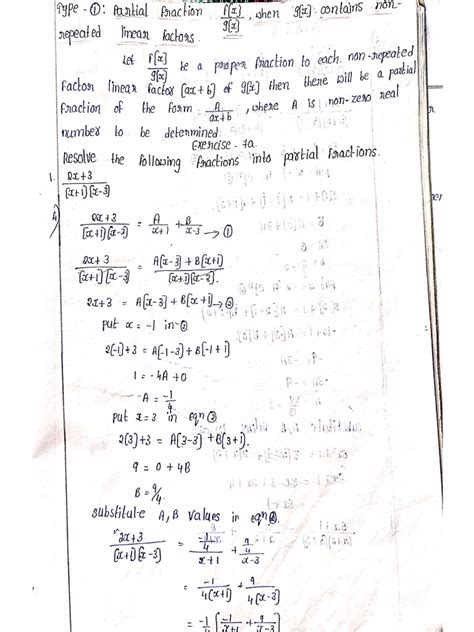 Type - ①: Partial fraction f[x]/g[x], when g[x] contains non-
repeated linear factors.
Let f[x]/g[x] be a proper fraction to each non-repeated
factor linear factor [ax+b] of g[x] then there will be a partial
fraction of the form A/ax+b, where A is non-zero real
number to be determined
Exercise - 7a
Resolve the following fractions into partial fractions.
1. 2x+3/[x+1][x-3]
2x+3/[x+1][x-3] = A/x+1 + B/x-3 → ①
2x+3/[x+1][x-3] = A[x-3]+B[x+1]/[x+1][x-3].
2x+3 = A[x-3]+B[x+1] → ②
put x = -1 in ②
2[-1]+3 = A[-1-3]+B[-1+1]
1 = -4A+0
-A = -1/4
put x=3 in eqn ②
2[3]+3 = A[3-3]+B[3+1].
9 = 0+4B
B = 9/4.
substitute A, B values in eqn
2x+3/[x+1][x-3] = -1/4/x+1 + 9/4/x-3
= -1/4[x+1] + 9/4[x-3]
= -1/4[1/x+1 + 9/x-3]